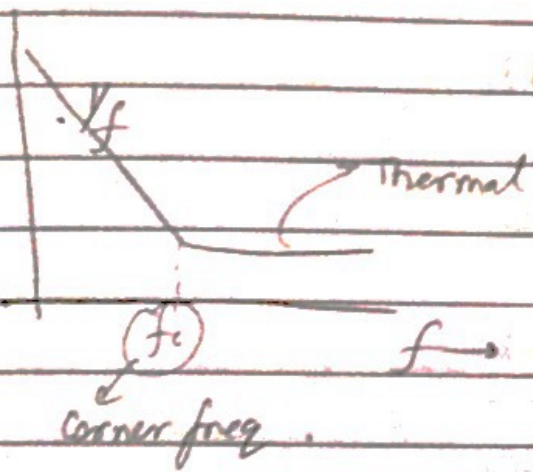 1/f
Thermal
fc
f
Corner freq.